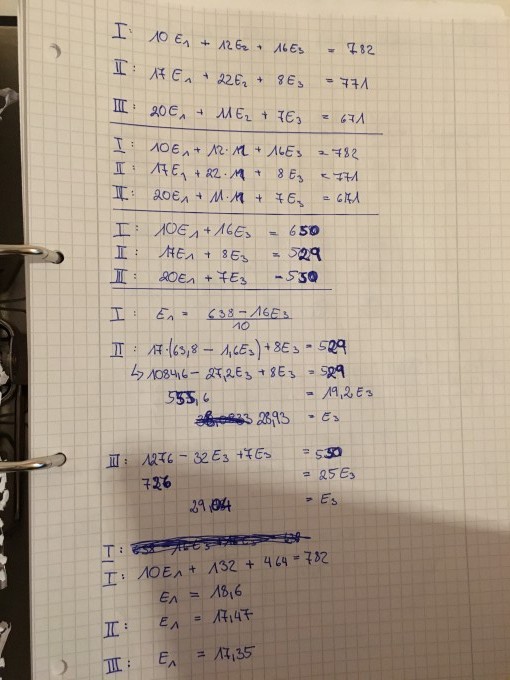 I: 10E₁ + 12E₂ + 16E₃ = 782
II: 17E₁ + 22E₂ + 8E₃ = 771
III: 20E₁ + 11E₂ + 7E₃ = 671
I: 10E₁ + 12·11 + 16E₃ = 782
II: 17E₁ + 22·11 + 8E₃ = 771
III: 20E₁ + 11·11 + 7E₃ = 671
I: 10E₁ + 16E₃ = 650
II: 17E₁ + 8E₃ = 529
III: 20E₁ + 7E₃ = 550
I: E₁ = (638 - 16E₃)/10
II: 17·(63,8 - 1,6E₃) + 8E₃ = 529
↳ 1084,6 - 27,2E₃ + 8E₃ = 529
555,6 = 19,2E₃
28,93 = E₃
III: 1276 - 32E₃ + 7E₃ = 550
726 = 25E₃
29,04 = E₃
I:
I: 10E₁ + 132 + 464 = 782
E₁ = 18,6
II: E₁ = 17,47
III: E₁ = 17,35